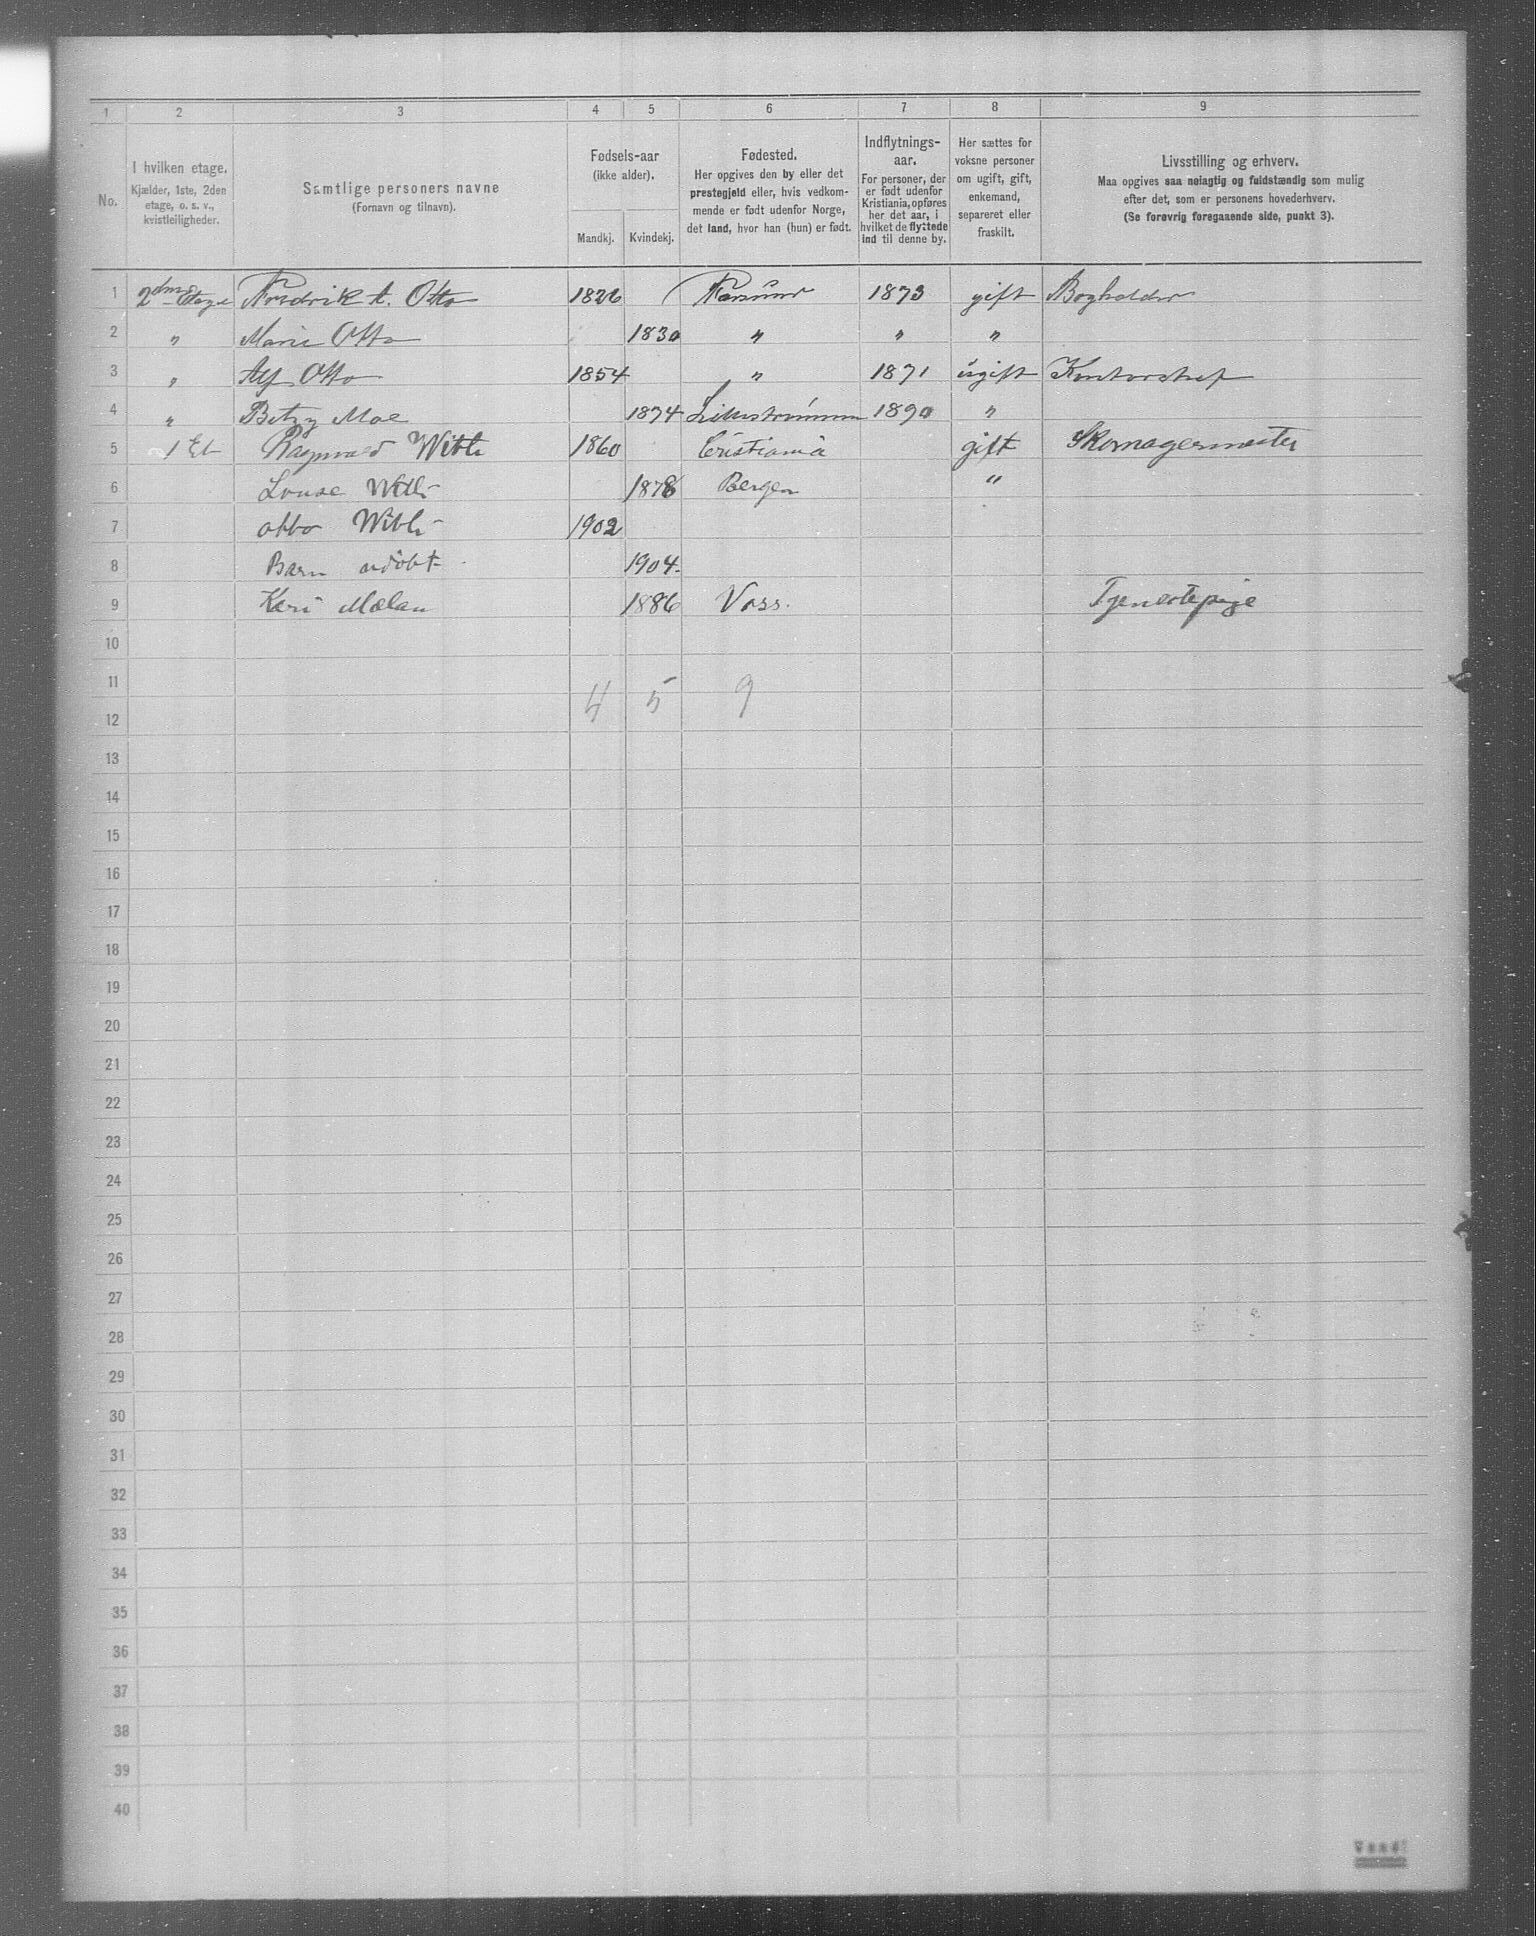 1 2 3 4 5 6 7 8 9
No.
I hvilken etage.
Kjælder, 1ste, 2den
etage, o. s. v.,
kvistleiligheder.
Samtlige personers navne
(Fornavn og tilnavn).
Fødsels-aar
(ikke alder).
Mandkj. Kvindekj.
Fødested.
Her opgives den by eller det
prestegjeld eller, hvis vedkom-
mende er født udenfor Norge,
det land, hvor han (hun) er født.
Indflytnings-
aar.
For personer, der
er født udenfor
Kristiania, opføres
her det aar, i
hvilket de flyttede
ind til denne by.
Her sættes for
voksne personer
om ugift, gift,
enkemand,
separeret eller
fraskilt.
Livsstilling og erhverv.
Maa opgives saa nøiagtig og fuldstændig som mulig
efter det, som er personens hovederhverv.
(Se forøvrig foregaaende side, punkt 3).
1 2den Etage Fredrik A. Otto 1826 Farsund 1873 gift Bogholder
2 " Marie Otto 1830 " " "
3 " Alf Otto 1854 " 1871 ugift Kontorchef
4 " Betzy Moe 1874 Lillestrømmen 1890 "
5 1 Et Ragnvald 1860 Cristiania gift Skomagermester
6 Louse 1878 Bergen "
7 otto 1902
8 Barn udöbt 1904.
9 Kari Mælan 1886 Voss. Tjenestepige
10
11
4 5 9
12
13
14
15
16
17
18
19
20
21
22
23
24
25
26
27
28
29
30
31
32
33
34
35
36
37
38
39
40
Vend!